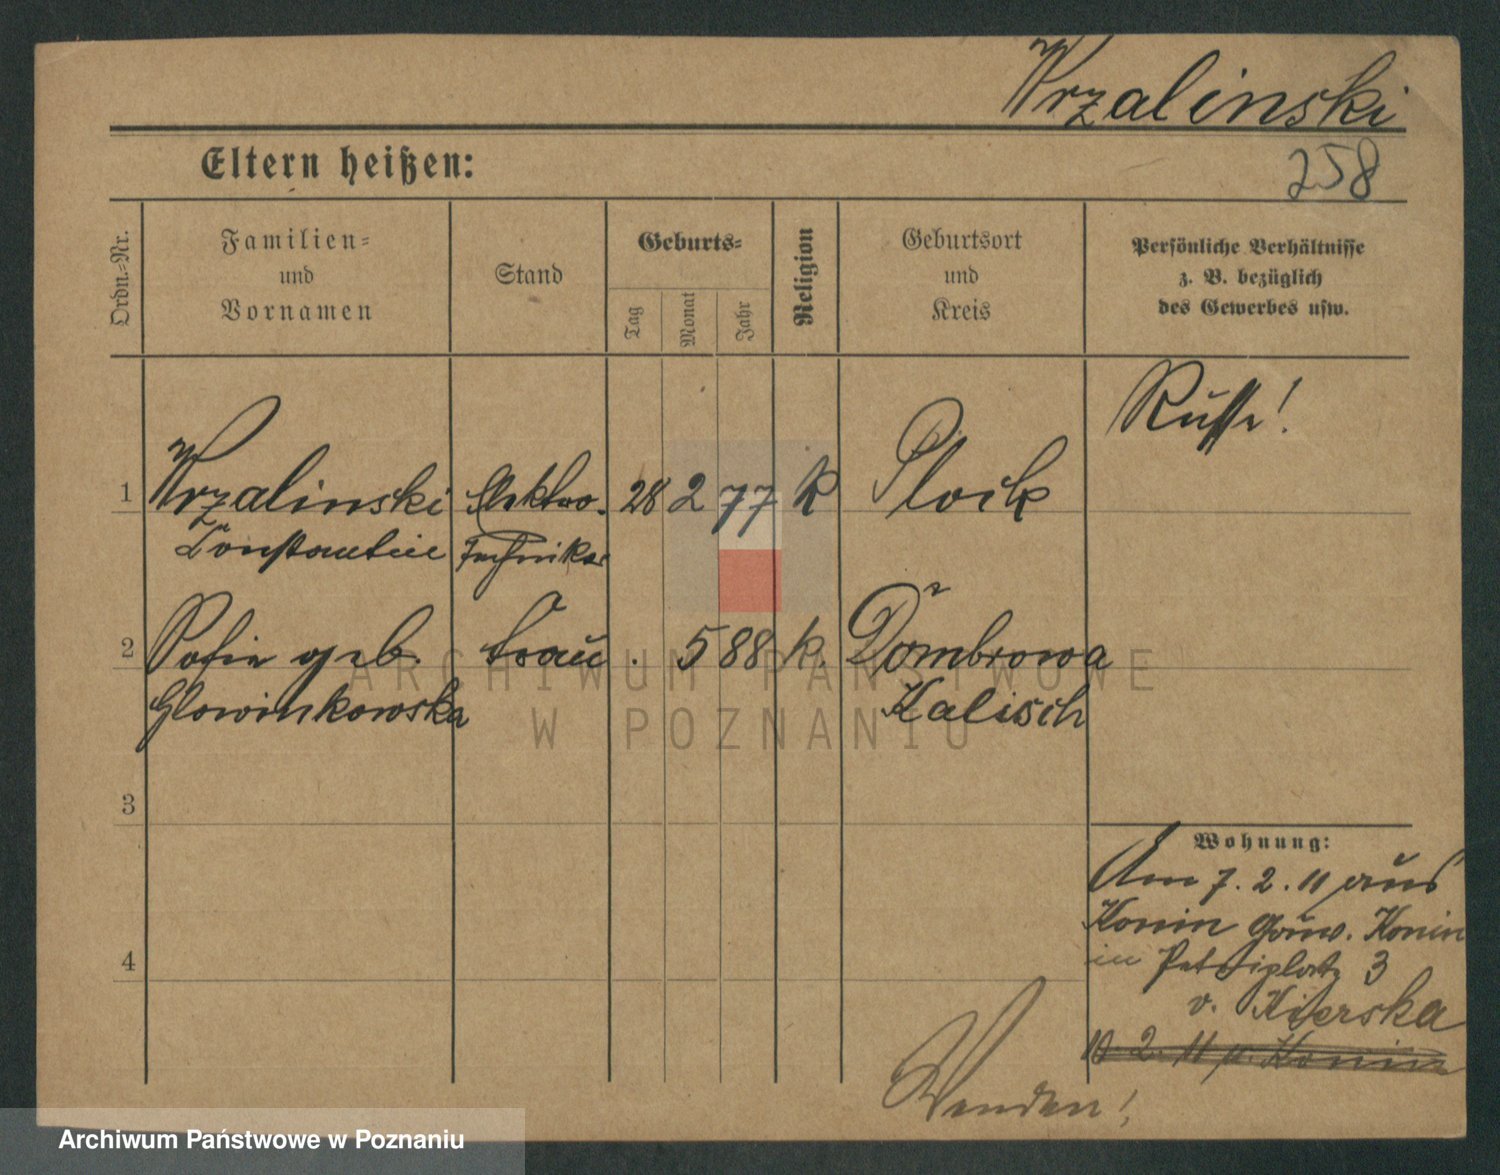 Wrzalinski
Eltern heißen:
258
Ordn.-Nr.
Familien-
und
Vornamen
Stand
Geburts-
Tag
Monat
Jahr
Religion
Geburtsort
und
Kreis
Persönliche Verhältnisse
z. B. bezüglich
des Gewerbes usw.
Russe!
1 Wrzalinski Elektro- 28 2 77 K Plock
Constantin Techniker
2 Sofie geb. Frau . 5 88 k. Dombrowa
Glowinkowska Kalisch
3
4
Wohnung:
Am 7. 2. 11 aus
Konin Gouv. Konin
in Petriplatz 3
v. Kierska
10 2. 11 n. Konin
Wenden!
ARCHIWUM PAŃSTWOWE
W POZNANIU
Archiwum Państwowe w Poznaniu